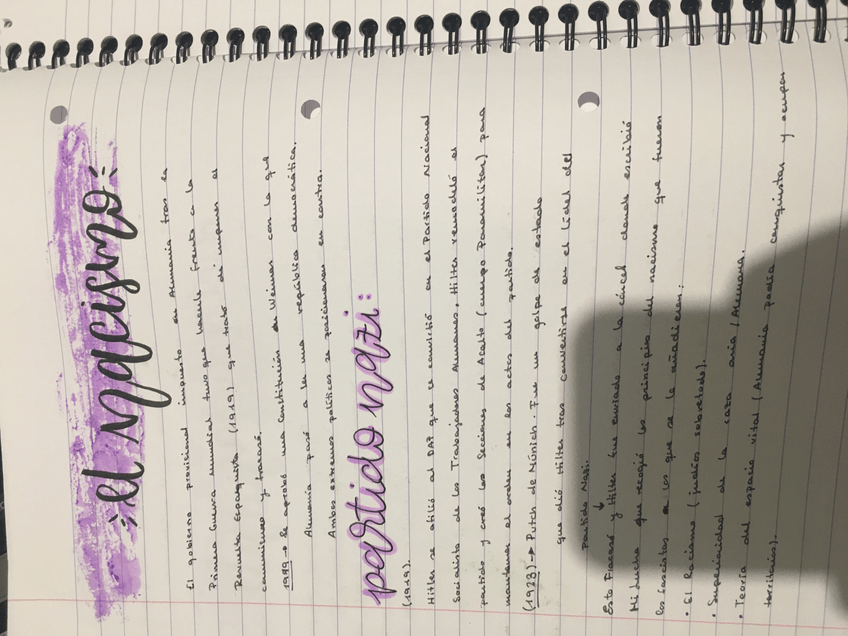 el nacismo
El gobierno provisional impuesto en Alemania tras la
Primera Guerra Mundial tuvo que hacerle frente a la
Revuelta Espartaquista (1919) que trató de imponer el
comunismo y fracasó.
1919 → Se aprobó una Constitución en Weimar con la que
Alemania pasó a ser una república democrática.
Ambos extremos políticos se posicionaron en contra.
partido nazi:
(1919).
Hitler se afilió al DAP que se convirtió en el Partido Nacional
Socialista de los Trabajadores Alemanes. Hitler remodeló el
partido y creó las Secciones de Asalto (cuerpo Paramilitar) para
mantener el orden en los actos del partido.
(1923) → Putch de Múnich. Fue un golpe de estado
que dió Hitler tras convertirse en el líder del
Partido Nazi.
Esto Fracasó y Hitler fue enviado a la cárcel donde escribió
Mi lucha que recogió los principios del nacismo que fueron
los fascistas a los que se le añadieron:
• El Racismo (judíos sobretodo).
• Superioridad de la raza aria / Alemana.
• Teoría del espacio vital (Alemania podía conquistar y ocupar
territorios).